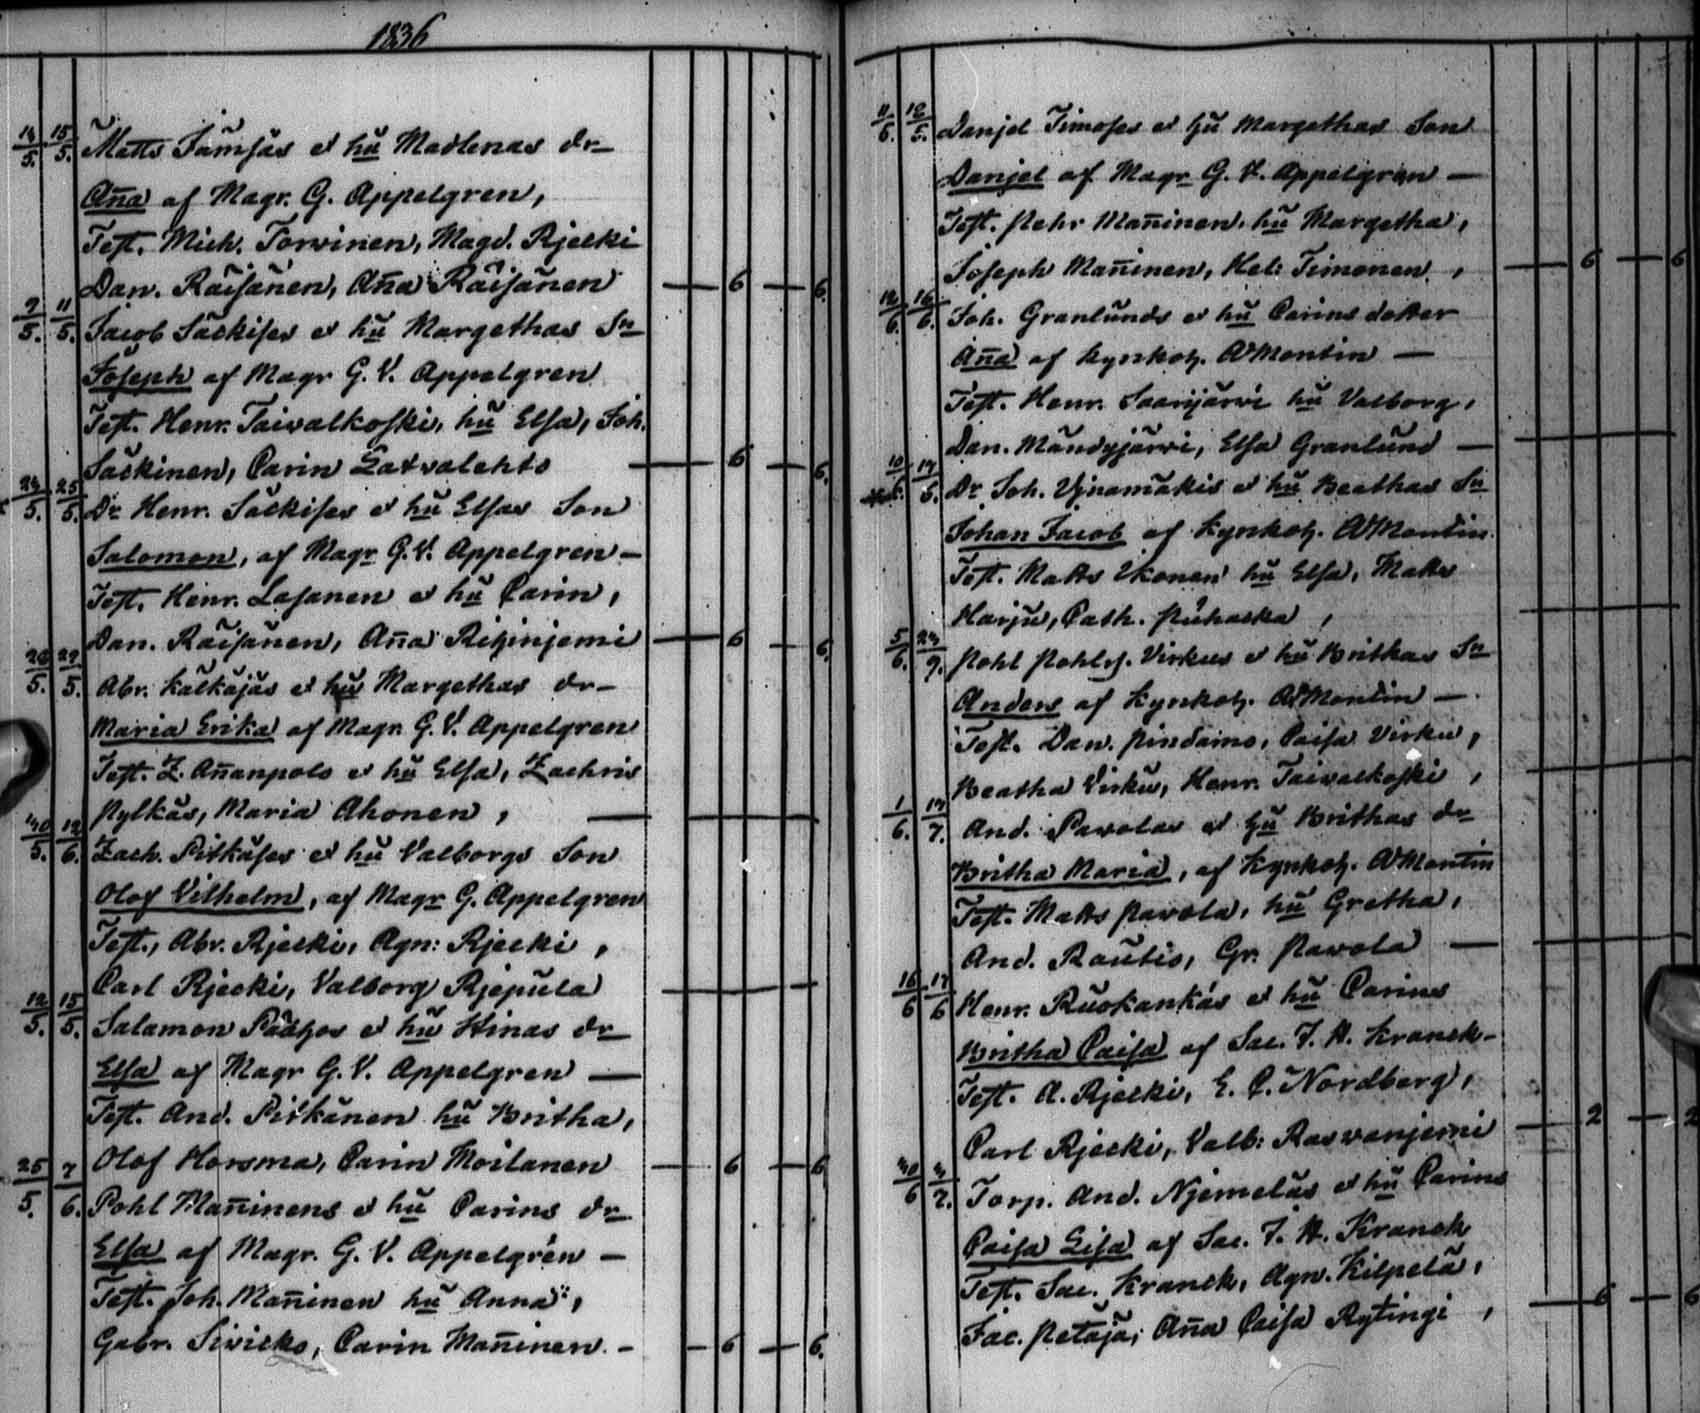 1836
14/5. 15/5. Matts Jämsäs et hu Madlenas dr
Aña af Magr. G. Appelgren,
Test. Mich. Torvinen, Magd. Rjecki
Dan. Räisänen, Aña Räisänen — 6 — 6.
9/5. 11/5. Jacob Säckises et hu Margethas Sn
Joseph af Magr G. V. Appelgren
Test. Henr. Taivalkoski, hu Elsa, Joh.
Säckinen, Carin Latvalehto — 6 — 6.
24/5. 25/5. Dr Henr. Säckises et hu Elsas Son
Salomon, af Magr G. V. Appelgren —
Test. Henr. Lasanen et hu Carin,
Dan. Räisänen, Aña Rihinjemi — 6 — 6.
26/5. 29/5. Abr. Kälkäjäs et hu Margethas dr
Maria Erika af Magr. G. V. Appelgren
Test. Z. Añanpolo et hu Elsa, Zachris
Pylkäs, Maria Ahonen, —
30/5. 12/6. Zach. Pitkäses et hu Valborgs Son
Olof Vilhelm, af Magr G. Appelgren
Test., Abr. Rjecki, Agn: Rjecki,
Carl Rjecki, Valborg Rjepula —
12/5. 15/5. Salamon Päähos et hu Stinas dr
Elsa af Magr G. V. Appelgren —
Test. And. Pitkänen hu Britha,
Olof Horsma, Carin Moilanen — 6 — 6
25/5. 7/6. Pohl Mañinens et hu Carins dr
Elsa af Magr. G. V. Appelgren —
Test. Joh. Mañinen hu Anna,
Gabr. Sivicko, Carin Mañinen. — 6 — 6.
11/6. 12/5. Danjel Timoses et hu Margethas Son
Danjel af Magr G. V. Appelgren —
Test. Pehr Mañinen, hu Margetha,
Joseph Mañinen, Hel: Timonen, — 6 — 6
12/6. 16/6. Joh. Granlunds et hu Carins dotter
Aña af Kyrkoh. A Montin —
Test. Henr. Saarijärvi hu Valborg,
Dan. Mändyjärvi, Elsa Granlund —
10/6. 17/5. Dr Joh. Vjnamäkis et hu Beathas Sn
Johan Jacob af Kyrkoh. A Montin
Test. Matts Ikonen hu Elsa, Matts
Harju, Cath. Puhacka,
5/6. 24/9. Pohl Pohls. Virkus et hu Brithas Sn
Anders af Kyrkoh. A Montin —
Test. Dan. Pindamo, Caisa Virku,
Beatha Virku, Henr. Taivalkoski,
1/6. 17/7. And. Pavolas et hu Brithas dr
Britha Maria, af Kyrkoh. A Montin
Test. Matts Pavola, hu Gretha,
And. Rautio, Gr. Pavola —
16/6 17/6 Henr. Ruokankás et hu Carins
Britha Caisa af Sac. J. H. Kranck —
Test. A. Rjecki, E. C. Nordberg,
Carl Rjecki, Valb: Rasvanjemi — 2 — 2
30/6 3/7. Torp. And. Njemeläs et hu Carins
Caisa Lisa af Sac. J. H. Kranck
Test. Sac. Kranck, Agn. Kilpelä,
Jac. Petäja, Aña Caisa Rytingi, — 6 — 6